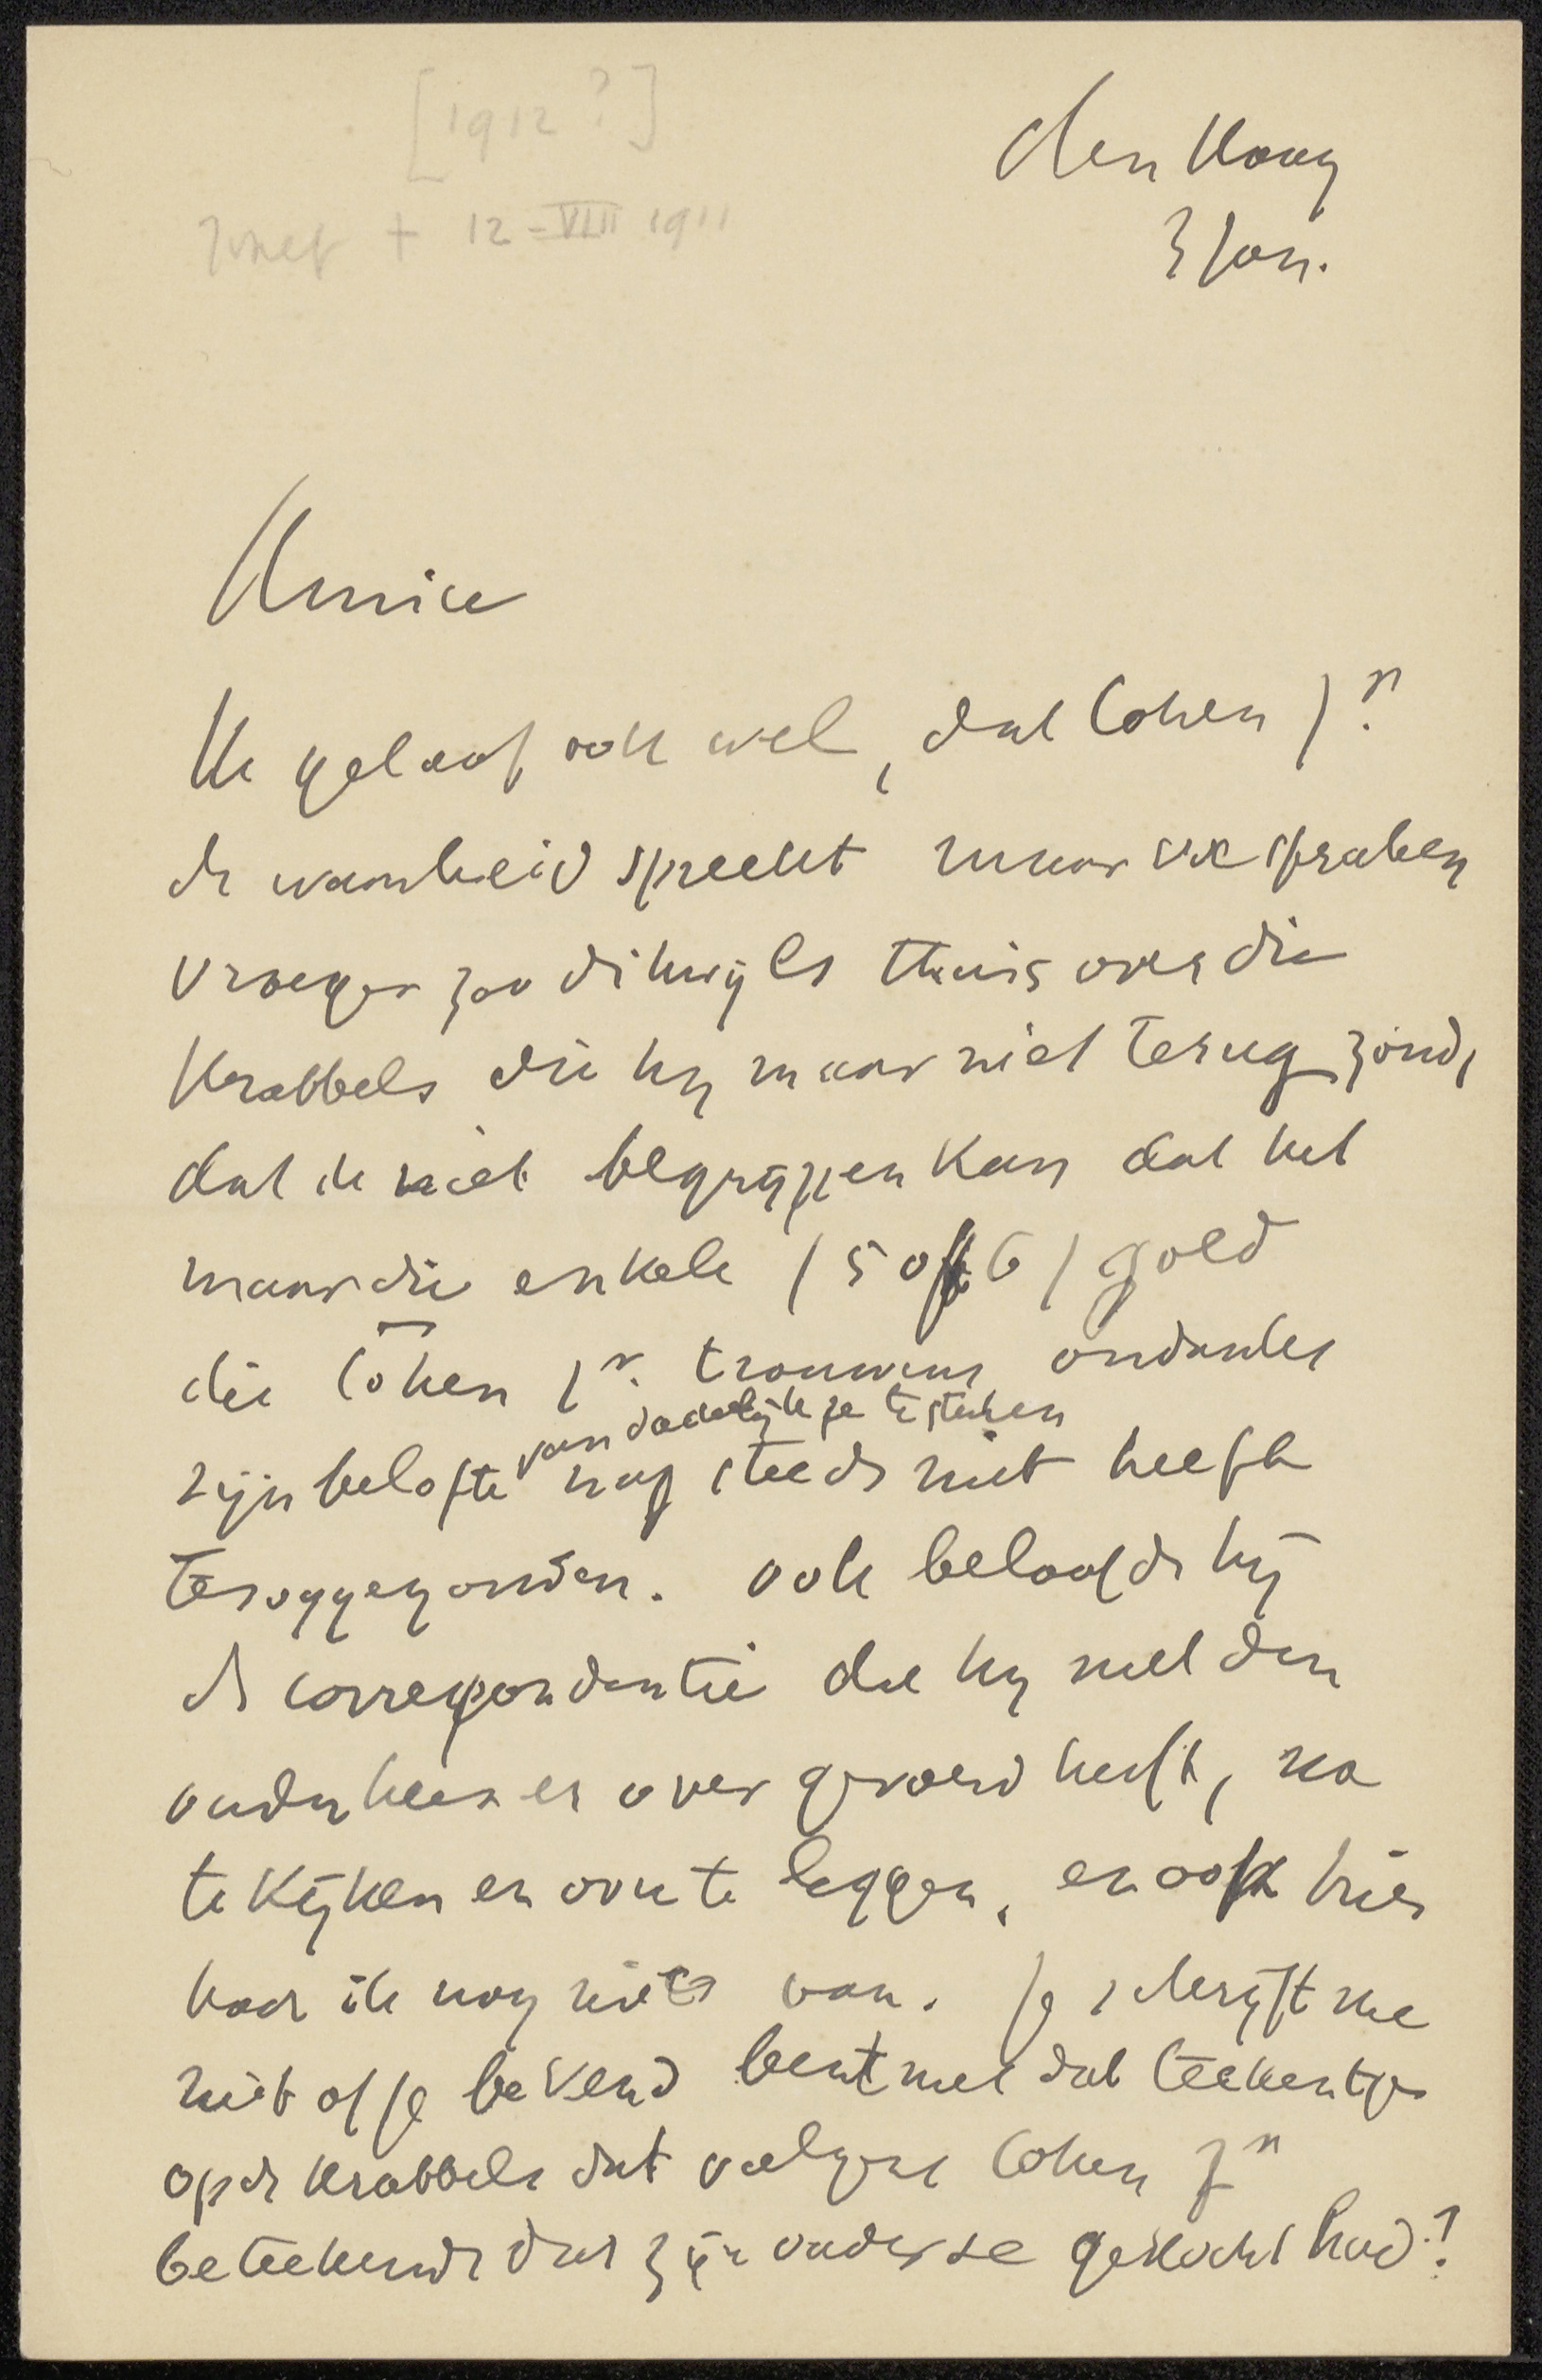 [1912?]
Jozef + 12-VIII 1911
den Haag
3 Jan.
Amice
Ik geloof ook wel, dat Cohen Jr.
de waarheid spreekt maar we spraken
vroeger zoo dikwijls thuis over die
Krabbels die hij maar niet terug zond,
dat ik niet begrijpen kan dat het
maar die enkele (5 of 6) gold
die Cohen Jr. trouwens ondanks
zijn belofte van dadelijk ze te sturen nog steeds niet heeft
teruggezonden. ook beloofde hij
de correspondentie die hij met den
ouden heer er over gevoerd heeft, na
te kijken en over te leggen, en ook hier
hoor ik nog niets van. Je schrijft me
niet of je bekend bent met dat teekentje
op de krabbels dat volgens Cohen Jr
beteekende dat zijn vader ze gekocht had?